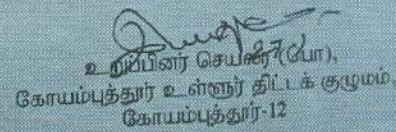 உறுப்பினர் செயலர் (பொ),
கோயம்புத்தூர் உள்ளூர் திட்டக் குழுமம்,
கோயம்புத்தூர்-12